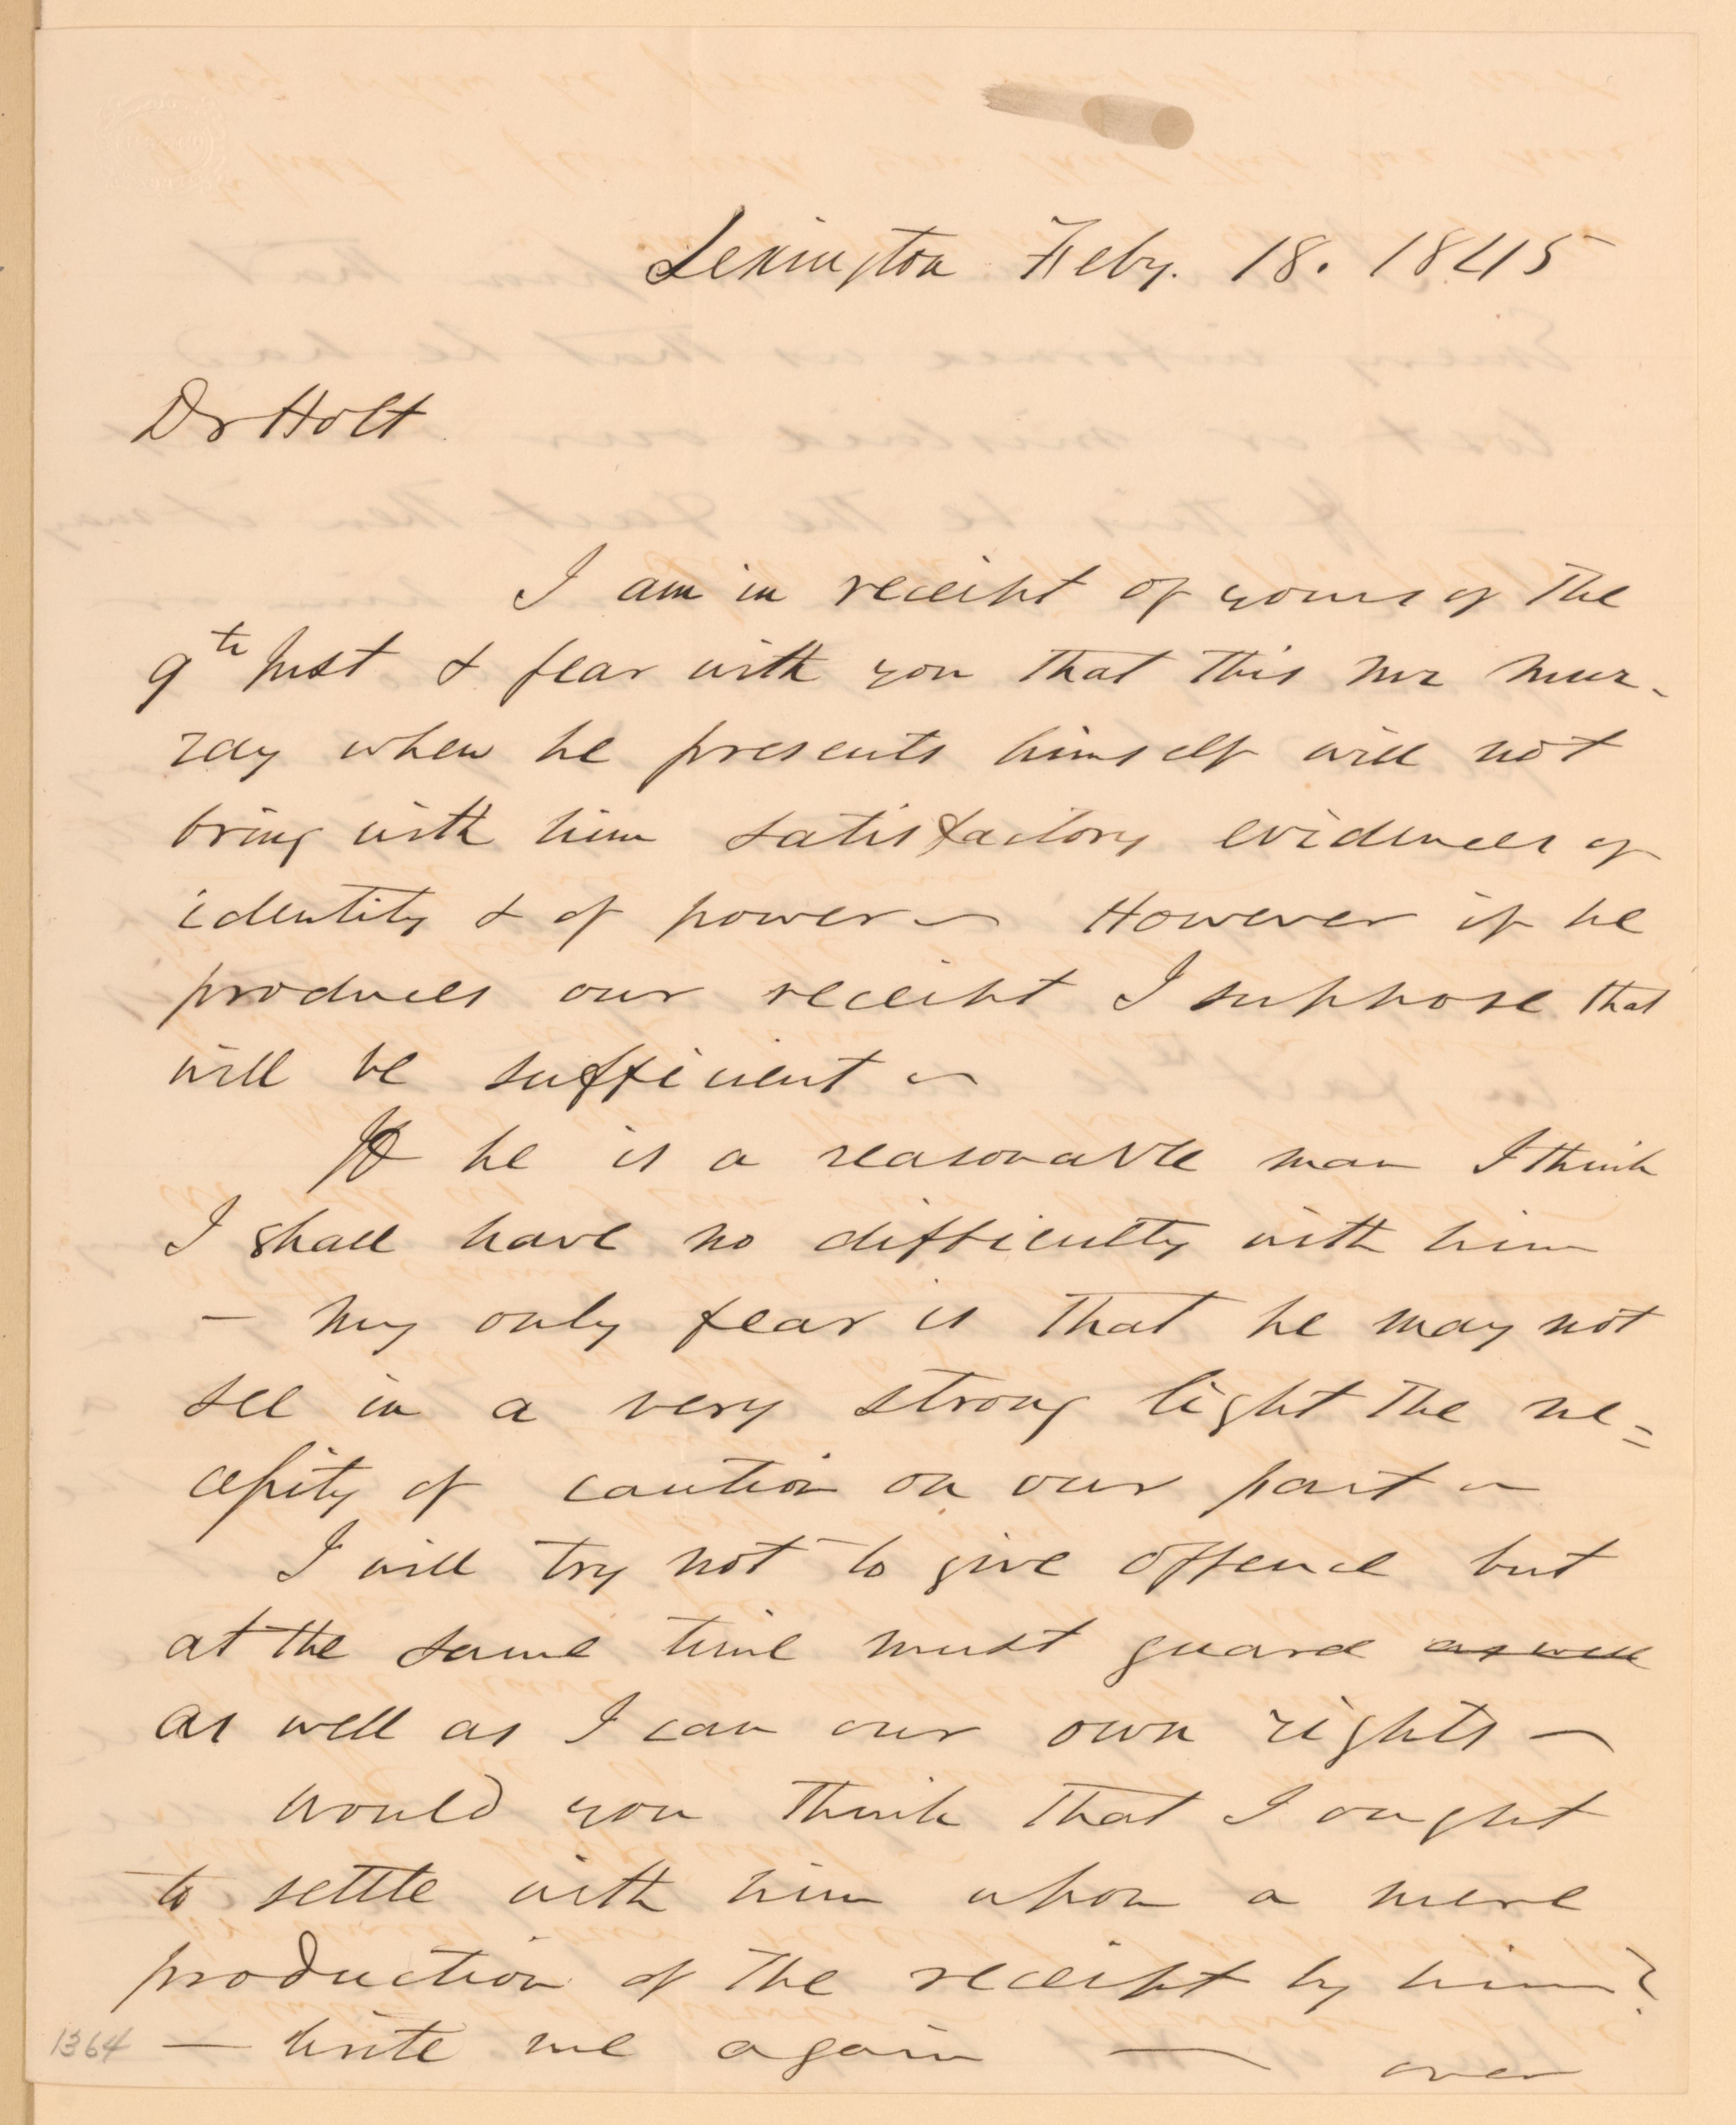 Lexington Feby. 18. 1845
Dr Holt
I am in receipt of yours of the
9th Inst & fear with you that this Mr Mur-
ray when he presents himself will not
bring with him satisfactory evidences of
identity & of power — However if he
produces our receipt I suppose that
will be sufficient —
If he is a reasonable man I think
I shall have no difficulty with him
— My only fear is that he may not
see in a very strong light the ne=
cessity of caution on our part —
I will try not to give offence but
at the same time must guard as well
as well as I can our own rights —
Would you think that I ought
to settle with him upon a mere
production of the receipt by him?
— Write me again — over
1364